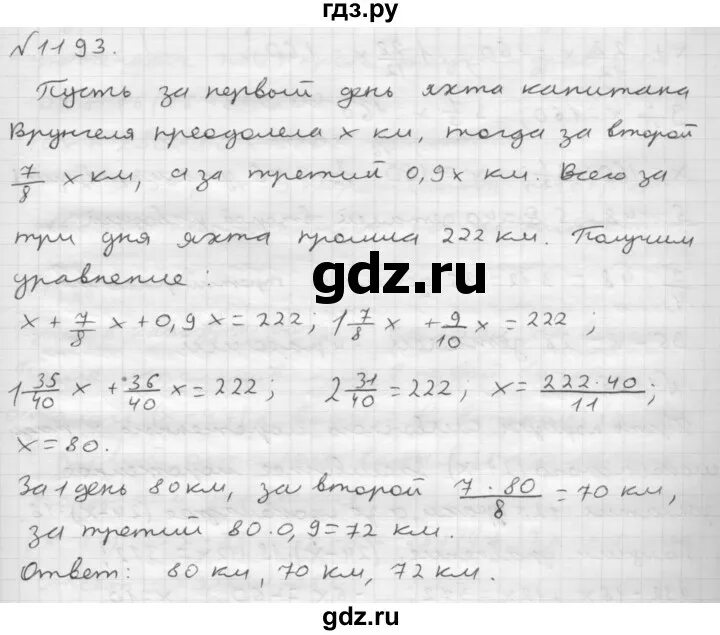 гдз.ру
№1193.
Пусть за первый день яхта капитана
Врунгеля преодолела x км, тогда за второй
7/8 x км, а за третий 0,9x км. Всего за
три дня яхта прошла 222 км. Получим
уравнение:
gdz.ru
x + 7/8 x + 0,9x = 222; 1 7/8 x + 9/10 x = 222;
1 35/40 x + 36/40 x = 222; 2 31/40 = 222; x = 222·40/11;
x = 80.
За 1 день 80 км, за второй 7·80/8 = 70 км,
за третий 80·0,9=72 км.
Ответ: 80 км, 70 км, 72 км.
gdz.ru